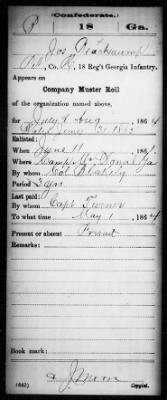 (Confederate.)
P 18 Ga.
Jos
Pvt, Co. 18 Reg't Georgia Infantry.
Appears on
Company Muster Roll
of the organization named above,
for July & Aug, 186 4
Dated
Enlisted:
When June 11, 186
Where Camp McDonald Ga
By whom Col Blakely
Period 3 yrs
Last paid:
By whom Capt Turner
To what time May 1, 186 4
Present or absent Present
Remarks:
Book mark:
(642) Copyist.